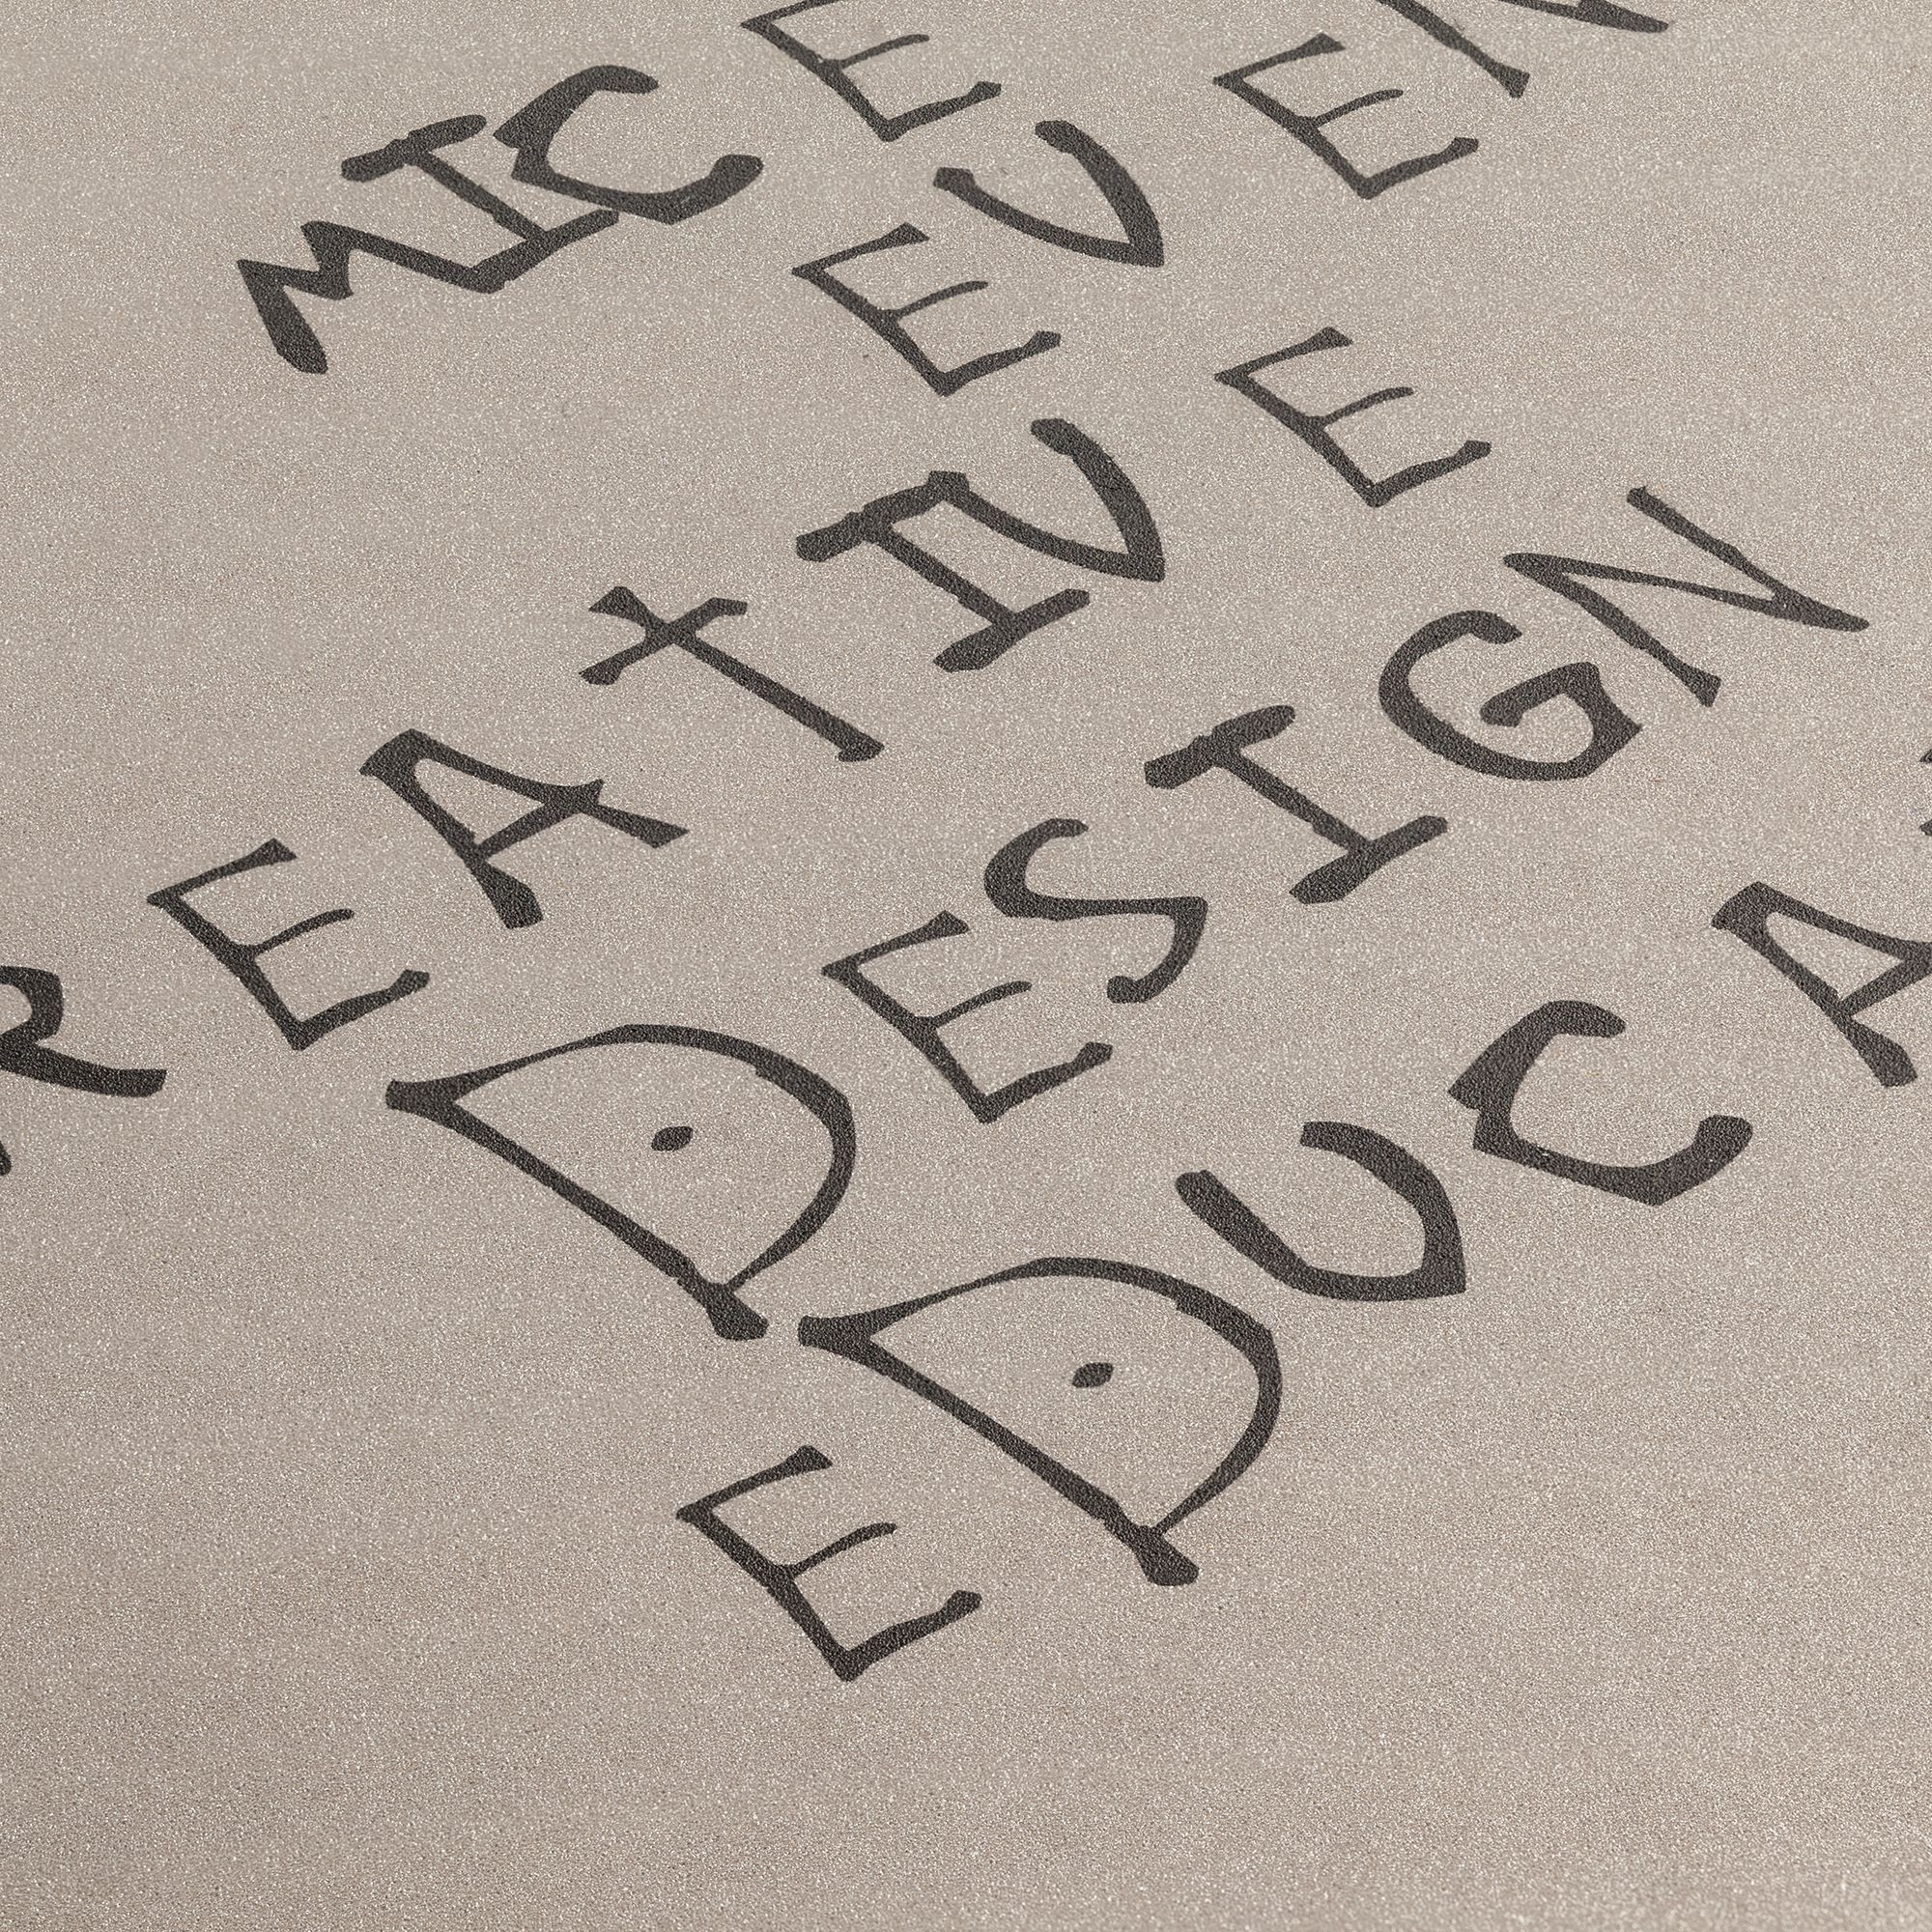 MICE
EVEN
REATIVE
DESIGN
EDUCA